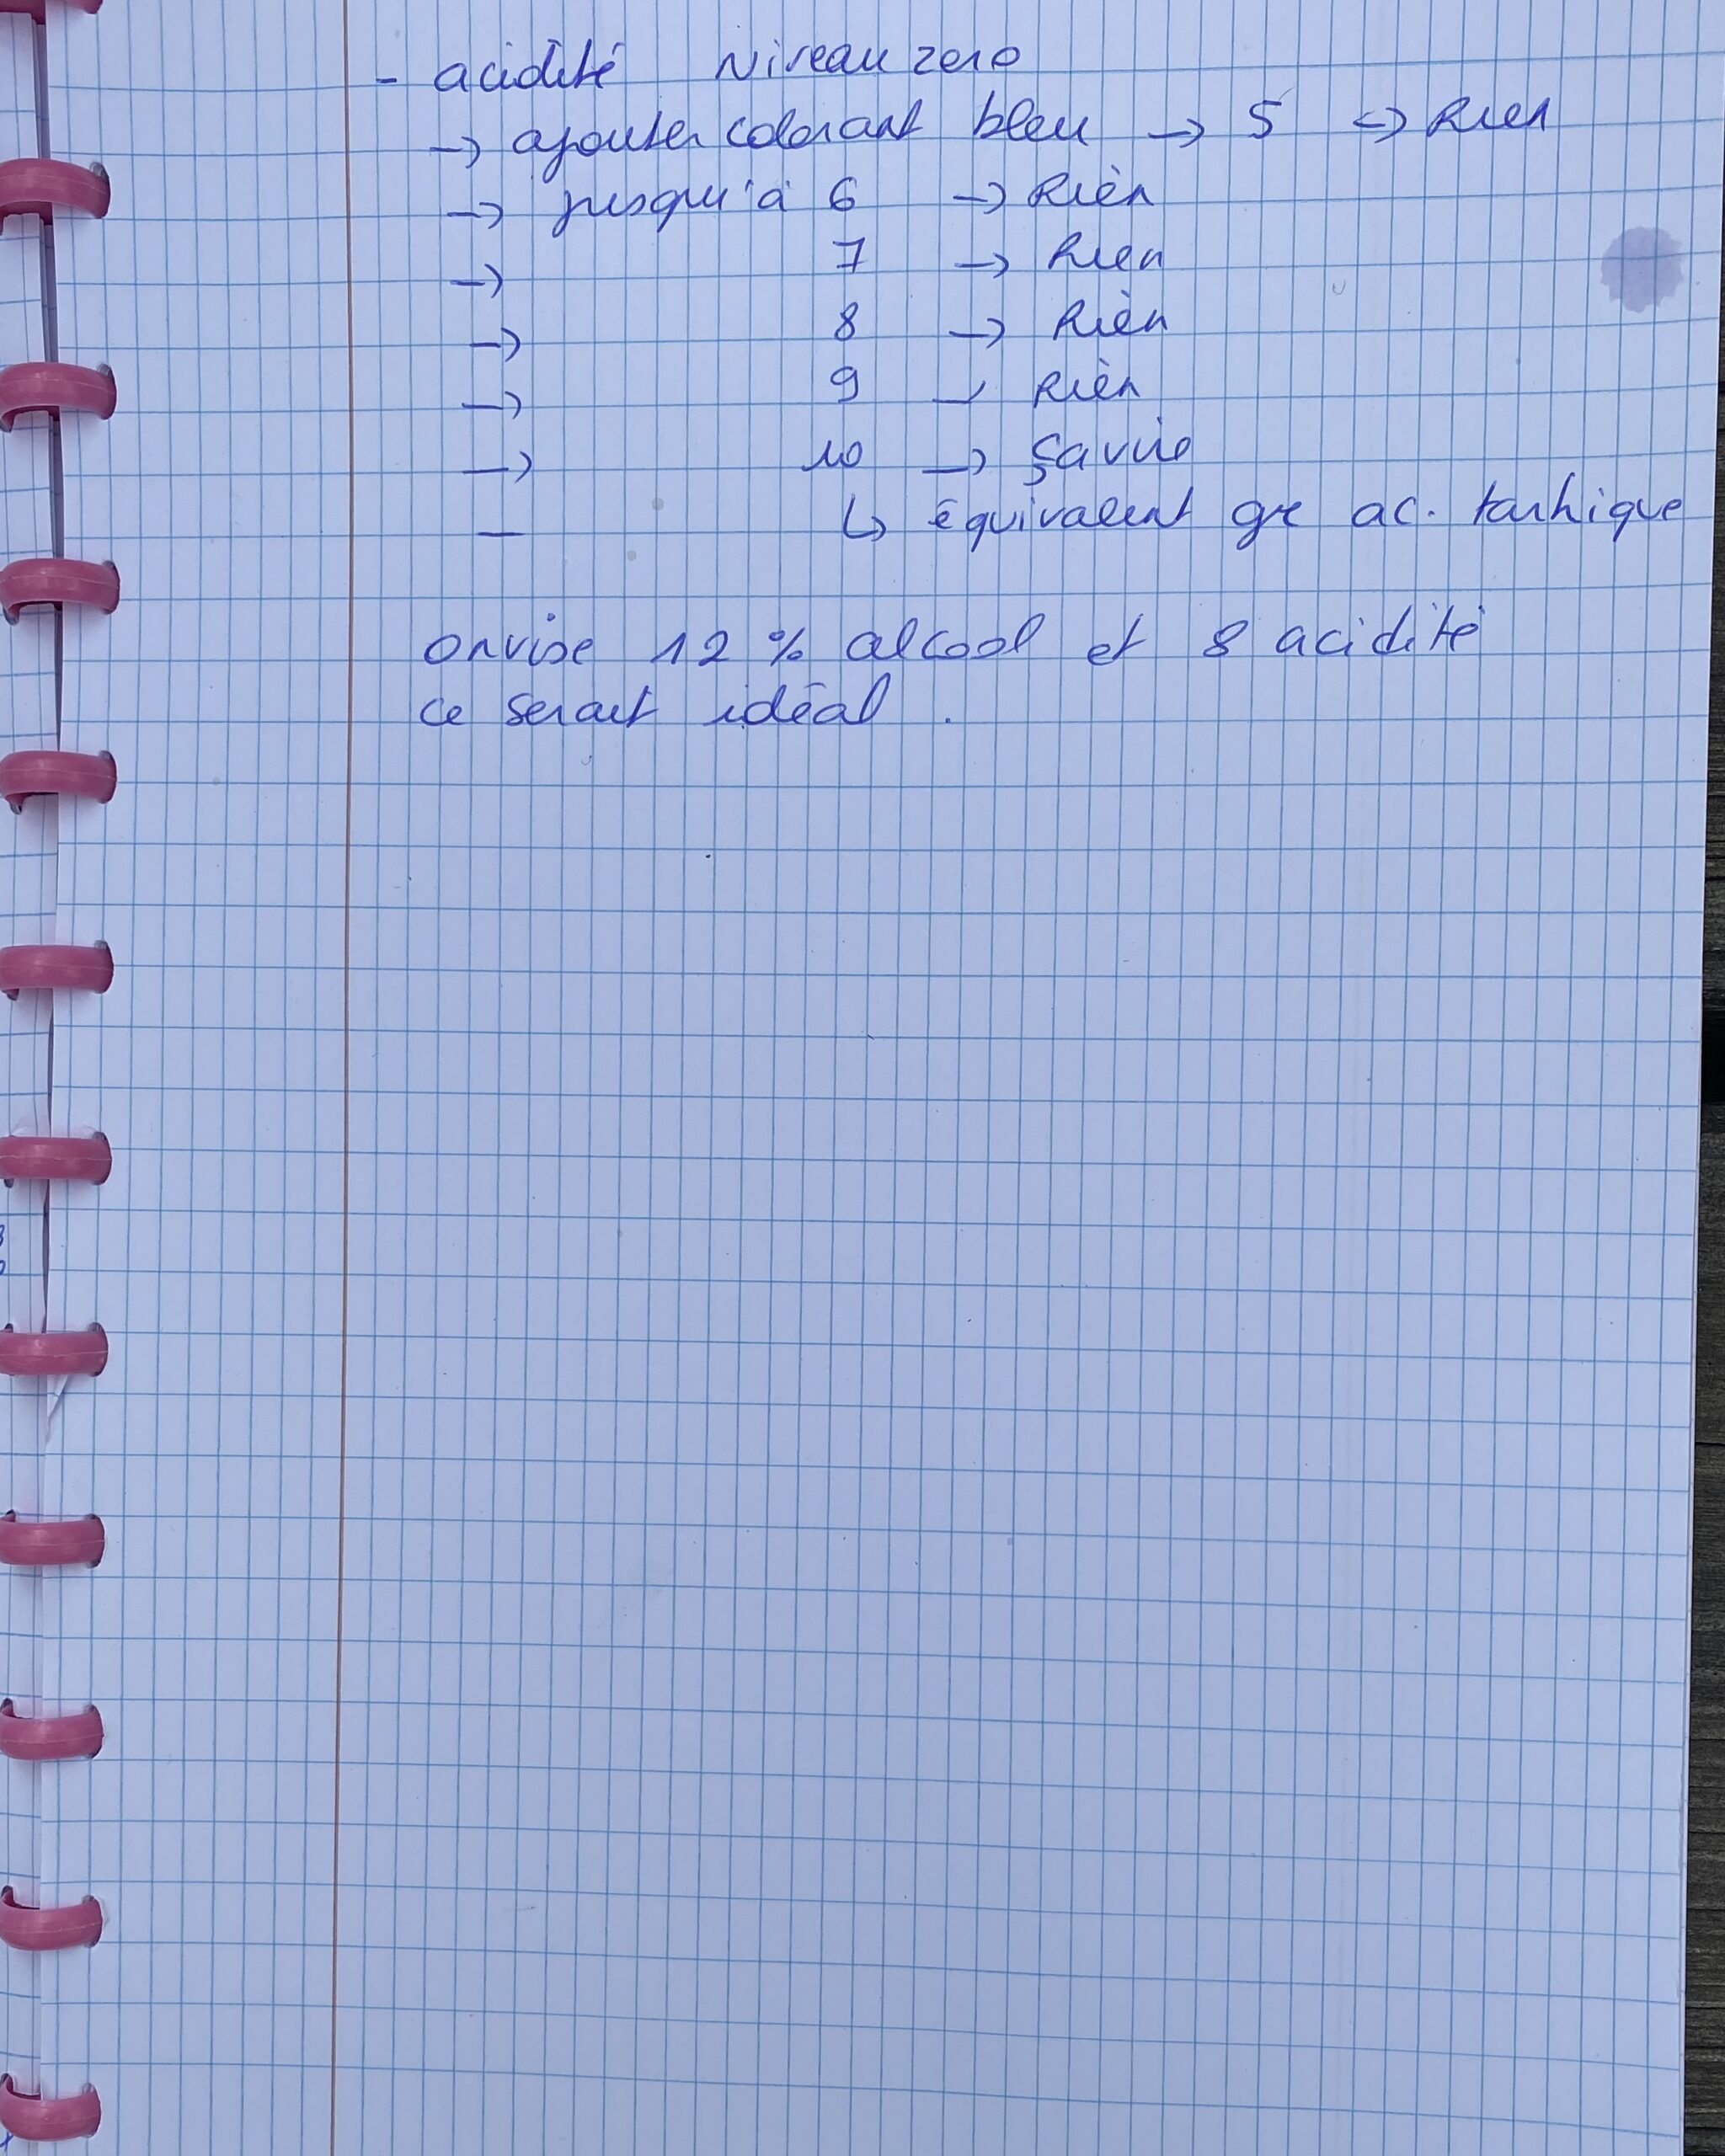 - acidité Niveau zero
-> ajouter colorant bleu -> 5 -> Rien
-> jusqu'à 6 -> Rien
-> 7 -> Rien
-> 8 -> Rien
-> 9 - Rien
-> 10 -> ça vire
- ↳ équivalent gr ac. tartrique
on vise 12 % alcool et 8 acidité
ce serait idéal .